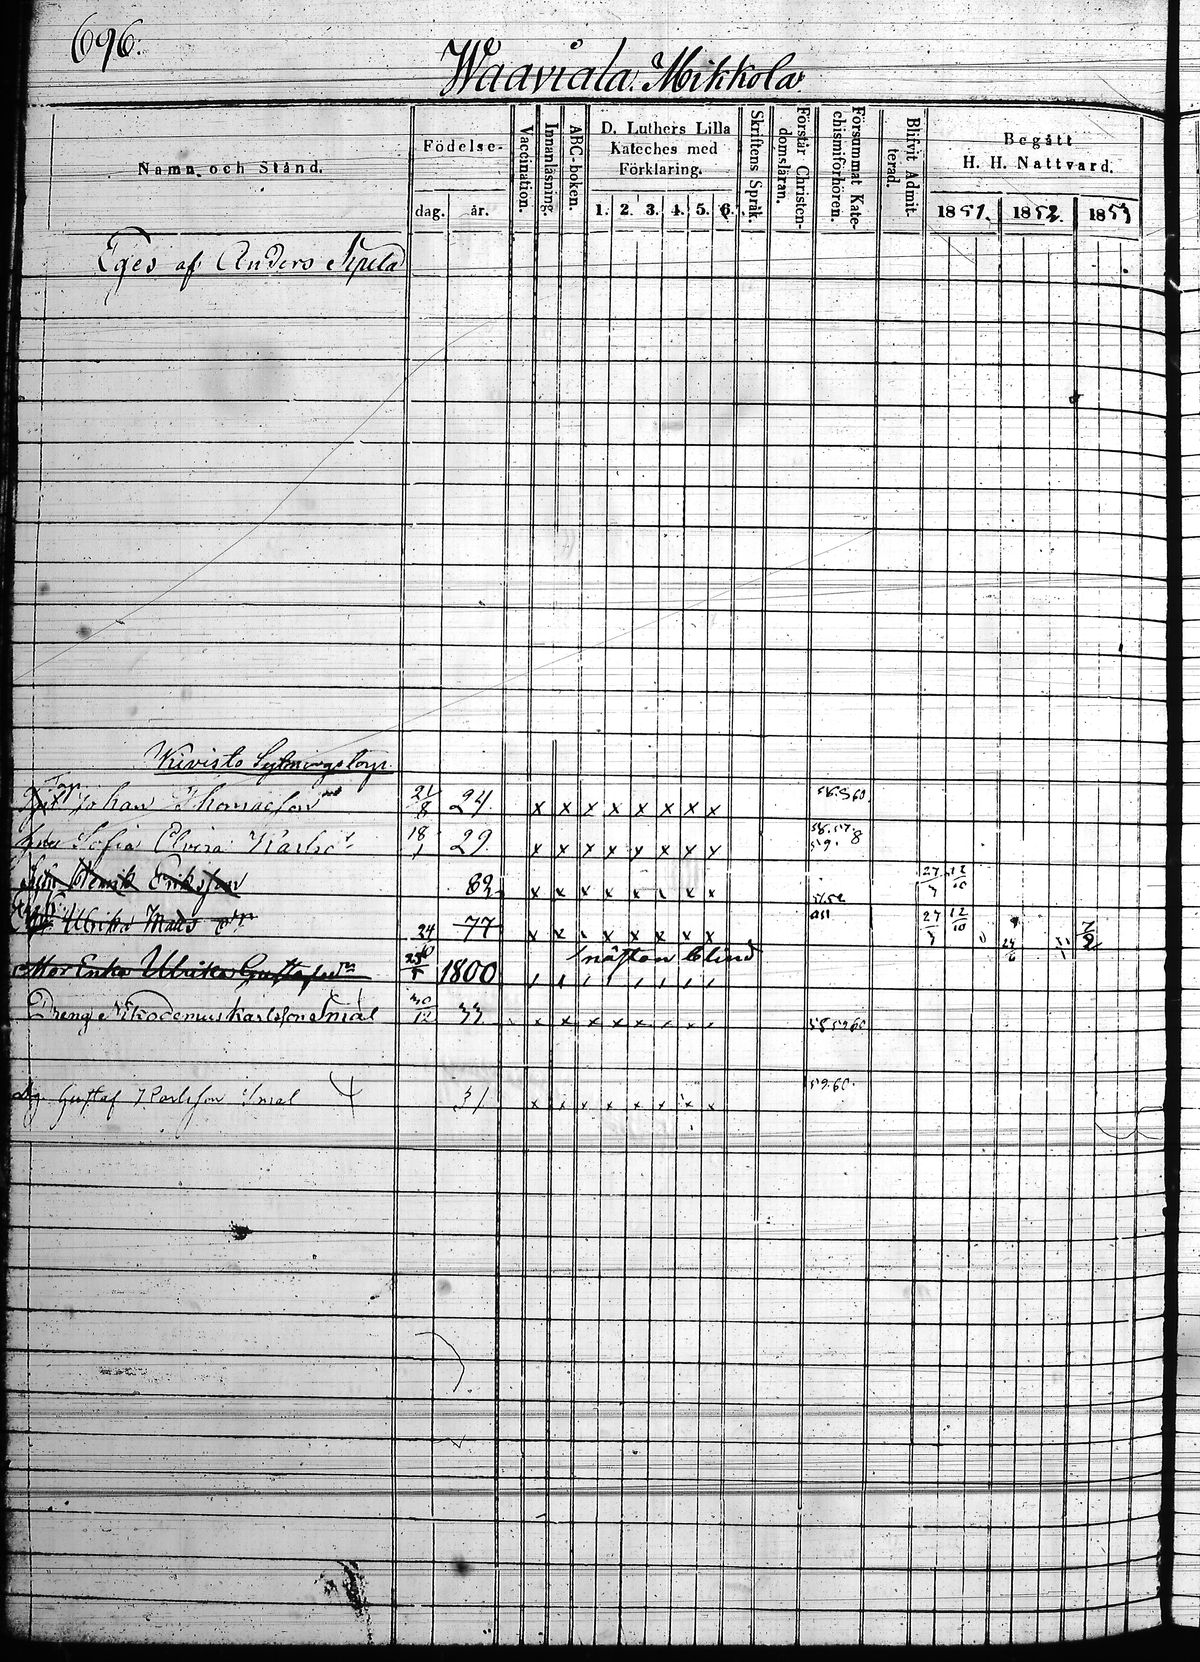 696.
Waaviala Mikkola
Namn och Stånd.
Födelse-
dag. år.
Vaccination.
Innanläsning.
ABC-boken.
D. Luthers Lilla
Kateches med
Förklaring.
1. 2. 3. 4. 5. 6.
Skriftens Språk.
Förstår Christen-
domsläran.
Försummat Kate-
chismiförhören.
Blifvit Admit-
terad.
Begått
H. H. Nattvard.
1851. 1852. 1853
Eges af Anders
Kivisto Sytningstorp
Johan Thomasson 21/8 24 x x x x x x x x
Sofia Elvira Karlsdr 18/1 29 x x x x x x x x
Henrik Eriksson 82 x x x x x x x x 27 12/10
Ulrika Mats dtr 24 77 x x x x x x x x 27 12/10
nästan blind
Enka Ulrika Gustafsdr 1800
Dreng Nikodemus Karlsson Smal 30/12 33 x x x x x x x 58 59 60
Gustaf Karlsson Smal 31 x x x x x x x x 59.60.